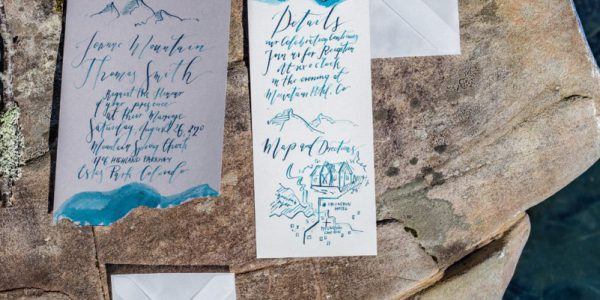 Joanne Mountain
Thomas Smith
Request the Honor
of your presence
at their Marriage
Saturday, August 26, 2
Mountain Spring Church
HIGHLAND PARKWAY
Estes Park Colorado
Details
our Celebration
Join us for Reception
At six o'clock
in the evening at
Mountain Hotel, Co
Map and Directions
MOUNTAIN